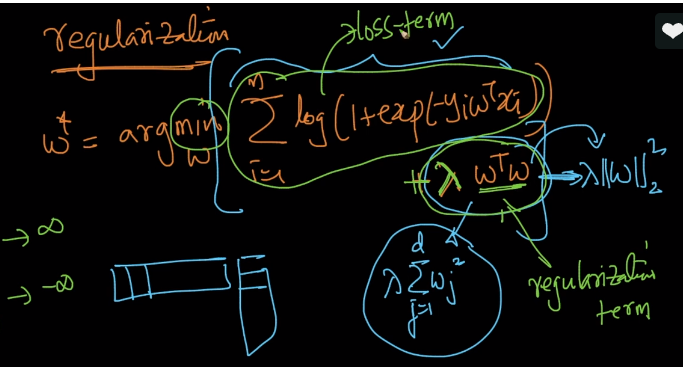 regularization
loss-term
w* = argmin_w ∑_{i=1}^{n} log(1+exp(-yi wᵀxi))
+ λ wᵀw → λ||w||₂²
→ ∞
→ -∞
λ ∑_{j=1}^{d} wj²
regularization
term